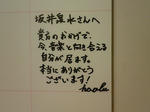 坂井泉水さんへ
貴方のおかげで、
今、音楽と向き合える
自分が居ます。
本当にありがとう
ございます!